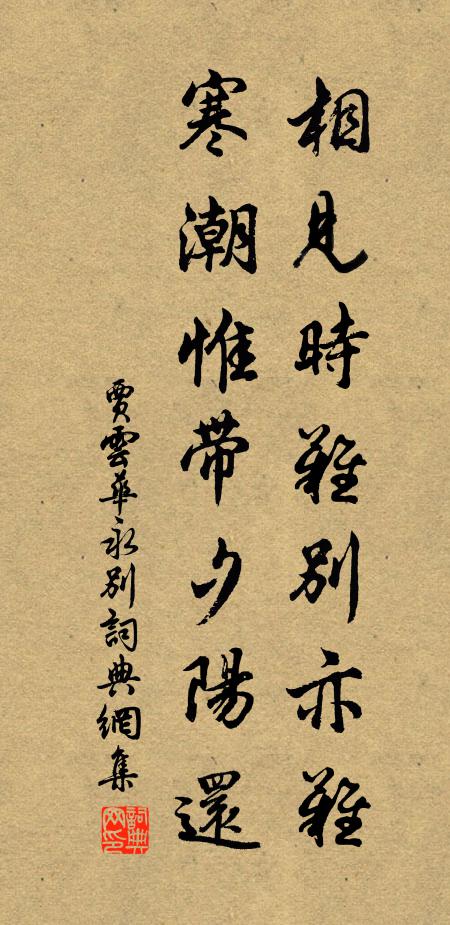 相見時難別亦難
寒潮惟帶夕陽還
賈雲華永別詞典網集
詞典
网印